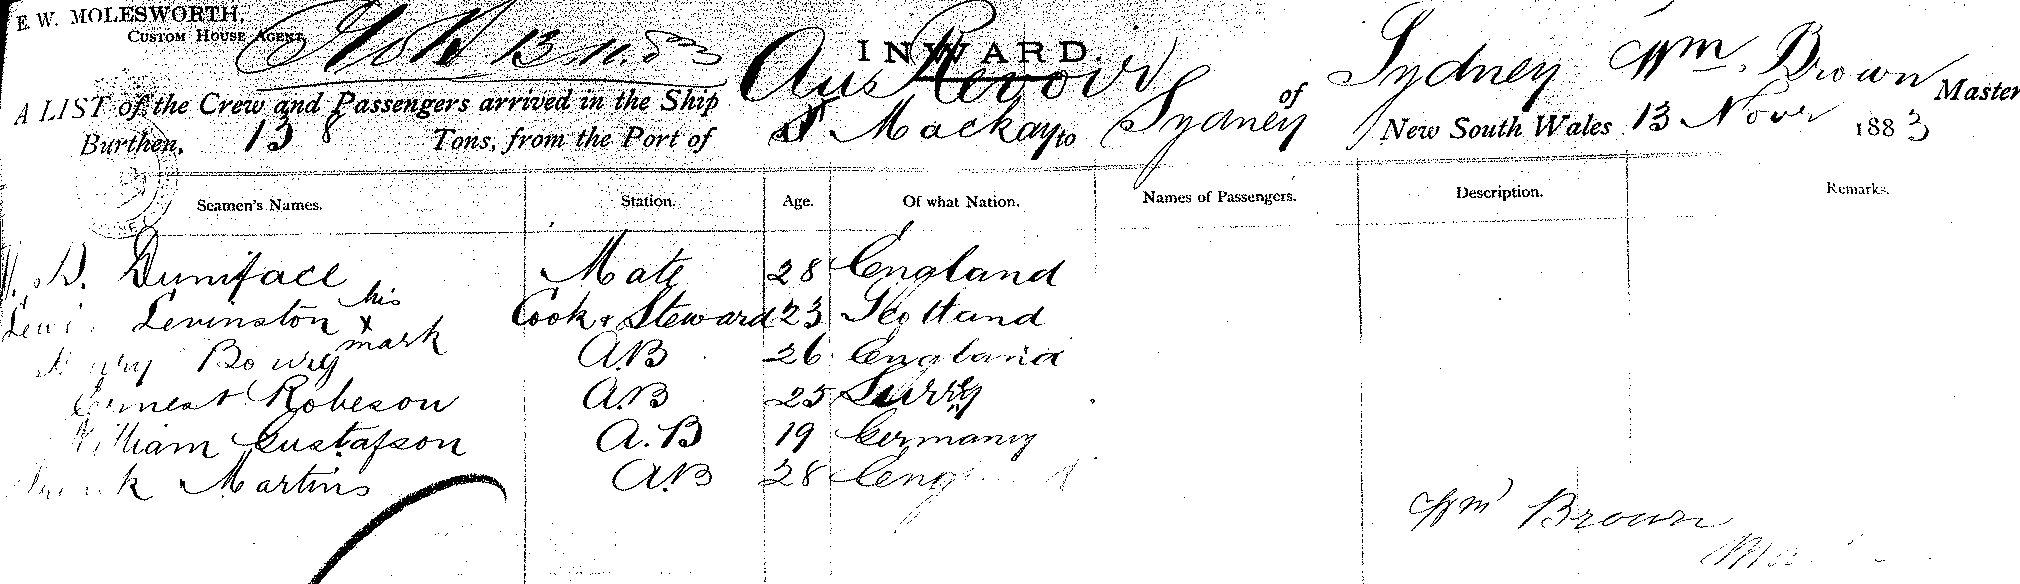 E. W. MOLESWORTH,
CUSTOM HOUSE AGENT,
13.11.83
INWARD.
Aus Revoir of Sydney Wm. Brown Master
A LIST of the Crew and Passengers arrived in the Ship
Burthen, 138 Tons, from the Port of Mackay to Sydney New South Wales 13 Novr 1883
Seamen's Names. Station. Age. Of what Nation. Names of Passengers. Description. Remarks.
Duniface Mate 28 England
Levinston his x mark Cook & Steward 23 Scotland
A.B 26 England
Ernest Robeson A.B 25 Surry
William Gustafson A.B 19 Germany
Martins A.B 28
Wm Brown